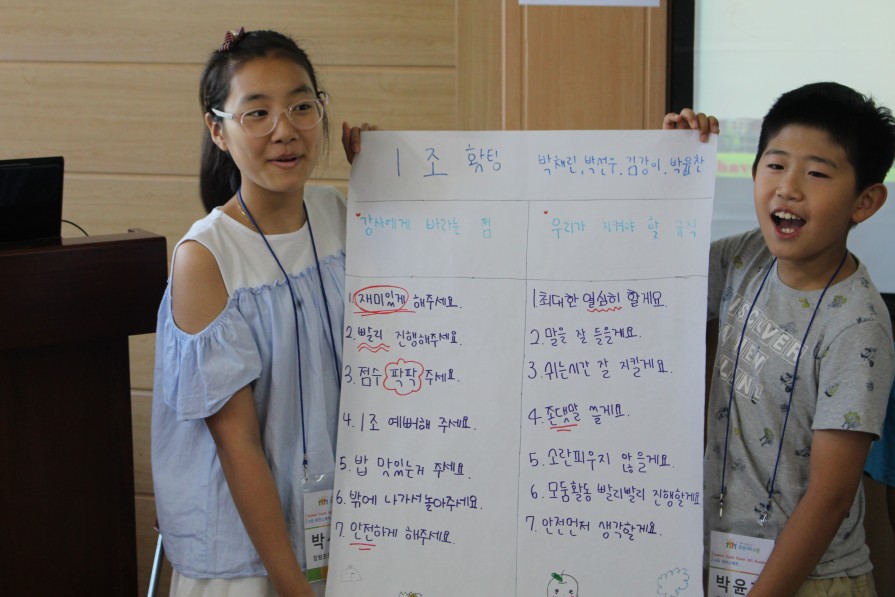 1조 홧팅
박채린, 박선우, 김강이, 박윤찬
강사에게 바라는 점
1. 재미있게 해주세요.
2. 빨리 진행해주세요.
3. 점수 팍팍 주세요.
4. 1조 예뻐해 주세요.
5. 밥 맛있는거 주세요.
6. 밖에 나가서 놀아주세요.
7. 안전하게 해주세요.
우리가 지켜야 할 규칙
1. 최대한 열심히 할게요.
2. 말을 잘 들을게요.
3. 쉬는시간 잘 지킬게요.
4. 존댓말 쓸게요.
5. 소란피우지 않을게요.
6. 모둠활동 빨리빨리 진행할게요.
7. 안전먼저 생각할게요.
박윤